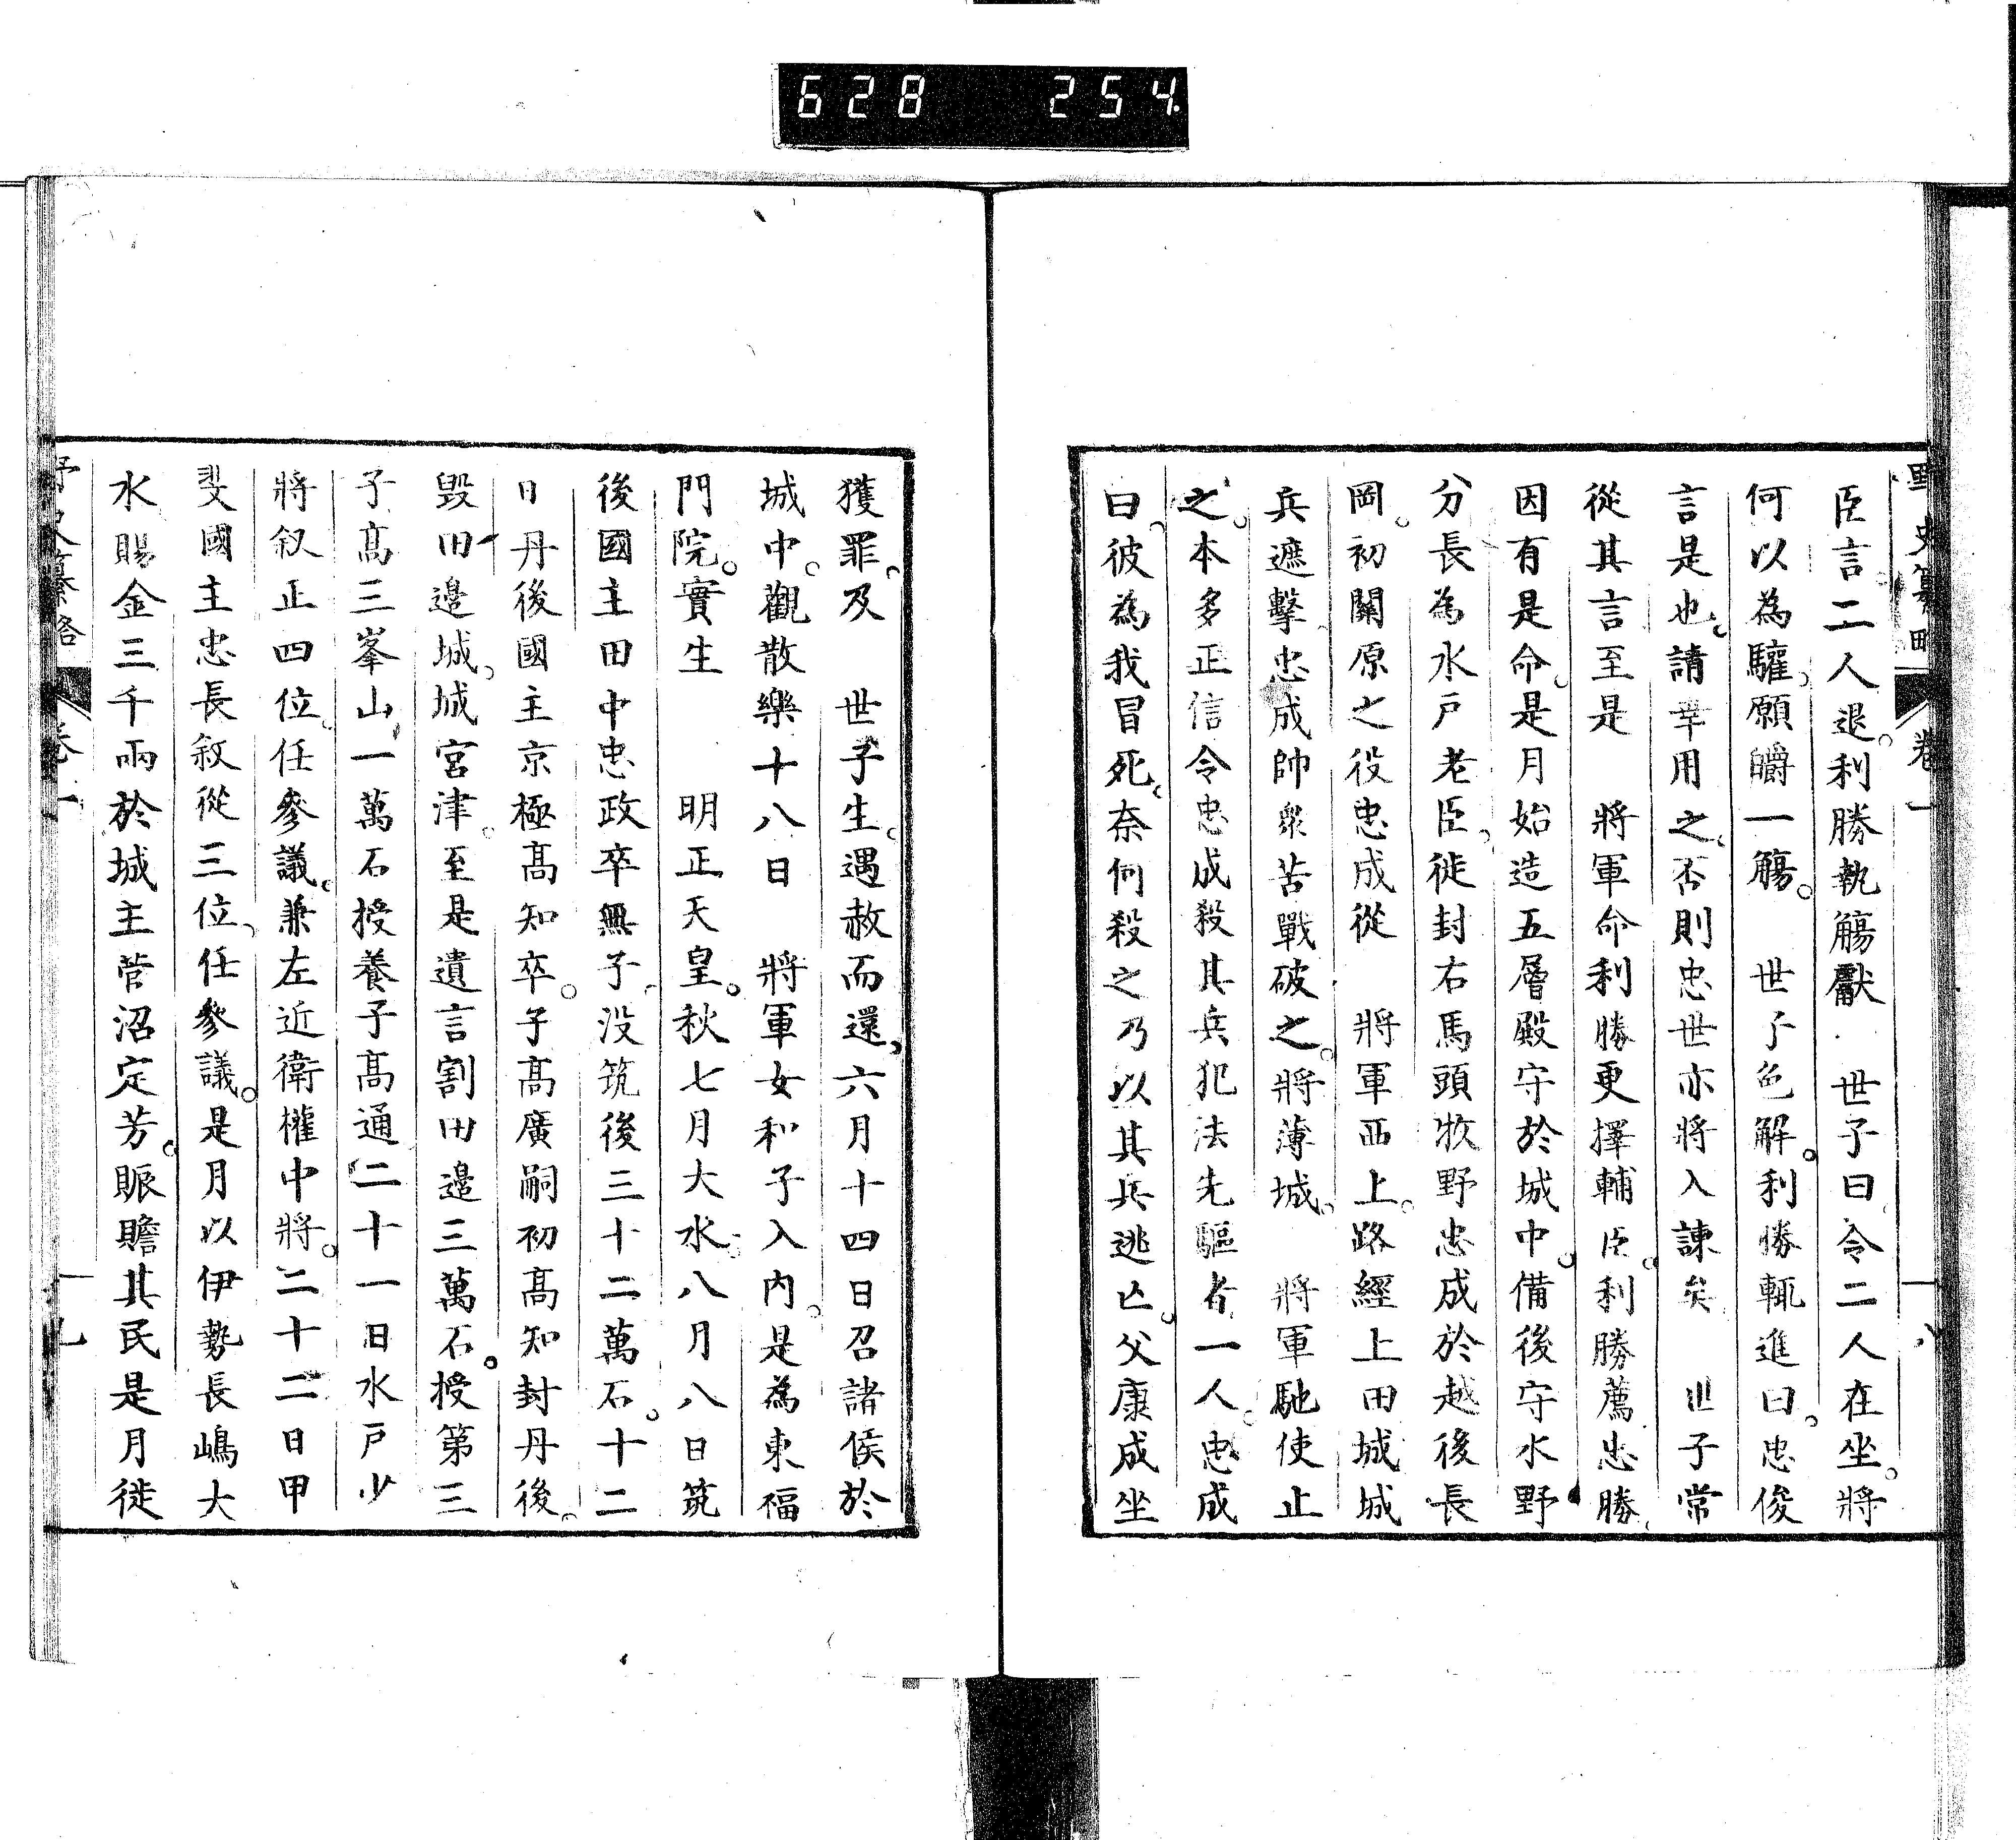 628 254
野史纂略 卷一 一八
臣言。二人退。利勝執觴獻 世子曰。令二人在坐。將
何以為驩。願釂一觴。 世子色解。利勝輒進曰。忠俊
言是也。請幸用之。否則忠世亦將入諫矣 世子常
從其言至是 將軍命利勝更擇輔臣。利勝薦忠勝。
因有是命。是月始造五層殿守於城中。備後守水野
分長為水戶老臣。徙封右馬頭牧野忠成於越後長
岡。初關原之役忠成從 將軍西上。路經上田城城
兵遮擊忠成帥衆苦戰破之。將薄城。 將軍馳使止
之。本多正信令忠成殺其兵犯法先驅者一人。忠成
曰。彼為我冒死。奈何殺之乃以其兵逃亡。父康成坐
獲罪。及 世子生。遇赦而還。六月十四日召諸侯於
城中。觀散樂十八日 將軍女和子入内。是為東福
門院。實生 明正天皇。秋七月大水。八月八日筑
後國主田中忠政卒無子。没筑後三十二萬石。十二
日丹後國主京極高知卒。子高廣嗣初高知封丹後。
毀田邉城。城宮津。至是遺言割田邉三萬石。授第三
子高三峯山一萬石授養子高通二十一日水戶少
將叙正四位。任參議。兼左近衛權中將。二十二日甲
斐國主忠長敘從三位。任參議。是月以伊勢長嶋大
水賜金三千兩於城主菅沼定芳。賑贍其民是月徙
野史纂略 卷一 一九